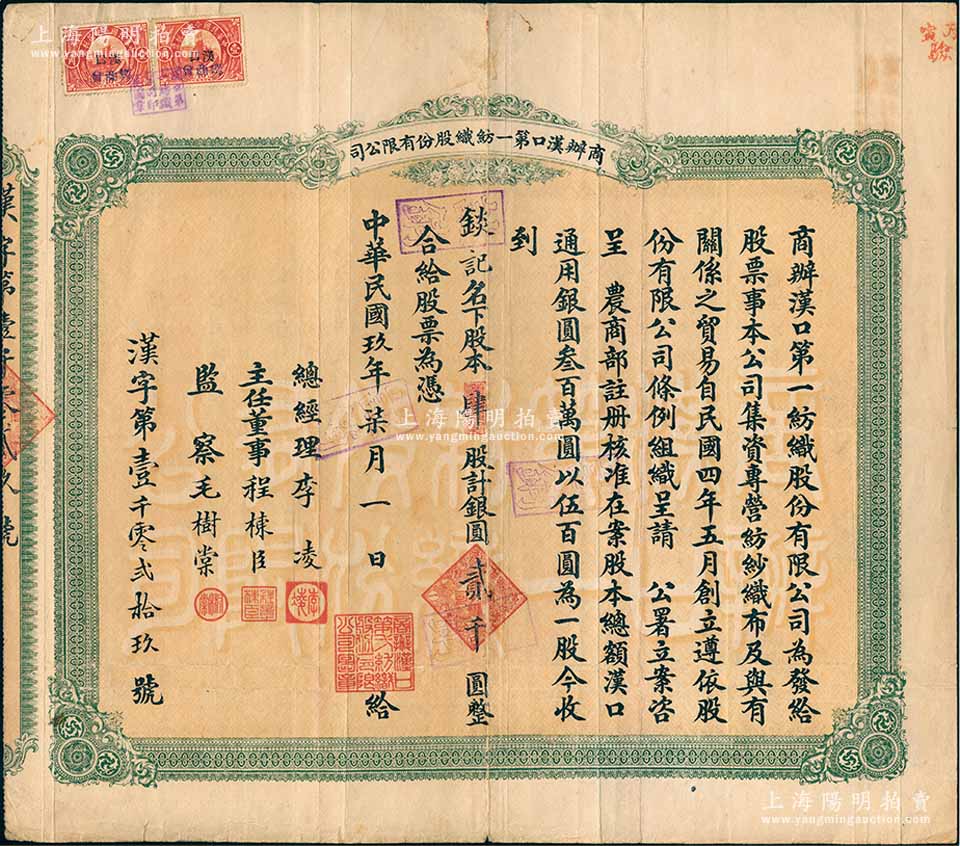 上海陽明拍賣
www.yangmingauction.com
商辦漢口第一紡織股份有限公司
商辦漢口第一紡織股份有限公司為發給
股票事本公司集資專營紡紗織布及與有
關係之貿易自民國四年五月創立遵依股
份有限公司條例組織呈請 公署立案咨
呈 農商部註册核准在案股本總額漢口
通用銀圓叁百萬圓以伍百圓為一股今收
到
錟記名下股本肆股計銀圓貳千圓整
合給股票為憑
中華民國玖年柒月一日 給
總經理李凌
主任董事程棟臣
監察毛樹棠
漢字第壹千零貳拾玖號
上海陽明拍賣
www.yangmingauction.com
上海陽明拍賣
www.yangmingauction.com